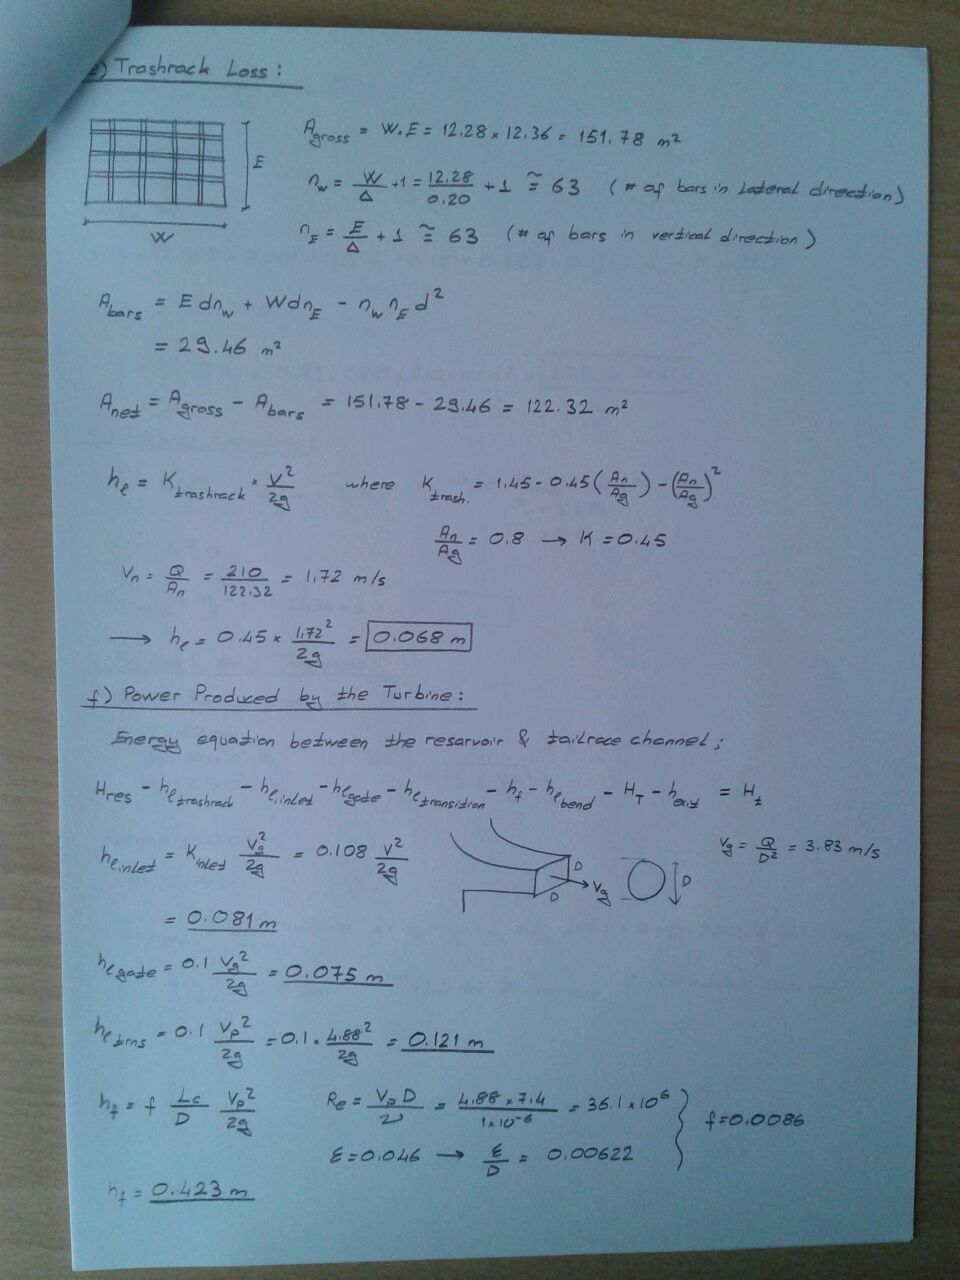 e) Trashrack Loss :
E
W
A_gross = W.E = 12.28 × 12.36 = 151.78 m²
n_w = W/Δ + 1 = 12.28/0.20 + 1 ≅ 63 (# of bars in Lateral direction)
n_E = E/Δ + 1 ≅ 63 (# of bars in vertical direction)
A_bars = E d n_w + W d n_E - n_w n_E d²
= 29.46 m²
A_net = A_gross - A_bars = 151.78 - 29.46 = 122.32 m²
h_l = K_trashrack * V²/2g where K_trash. = 1.45 - 0.45 (An/Ag) - (An/Ag)²
An/Ag = 0.8 → K = 0.45
V_n = Q/An = 210/122.32 = 1.72 m/s
→ h_l = 0.45 × 1.72²/2g = 0.068 m
f) Power Produced by the Turbine :
Energy equation between the resarvoir & tailrace channel ;
H_res - h_l trashrack - h_l inlet - h_l gate - h_l transition - h_f - h_l bend - H_T - h_exit = H_t
h_l inlet = K_inlet V_g²/2g = 0.108 V²/2g
D
D
V_g
D
V_g = Q/D² = 3.83 m/s
= 0.081 m
h_l gate = 0.1 V_g²/2g = 0.075 m
h_l trns = 0.1 V_p²/2g = 0.1 × 4.88²/2g = 0.121 m
h_f = f Lc/D V_p²/2g
Re = V_p D/ν = 4.88 × 7.4/1×10⁻⁶ = 36.1 × 10⁶
ε = 0.046 → ε/D = 0.00622
f = 0.0086
h_f = 0.423 m